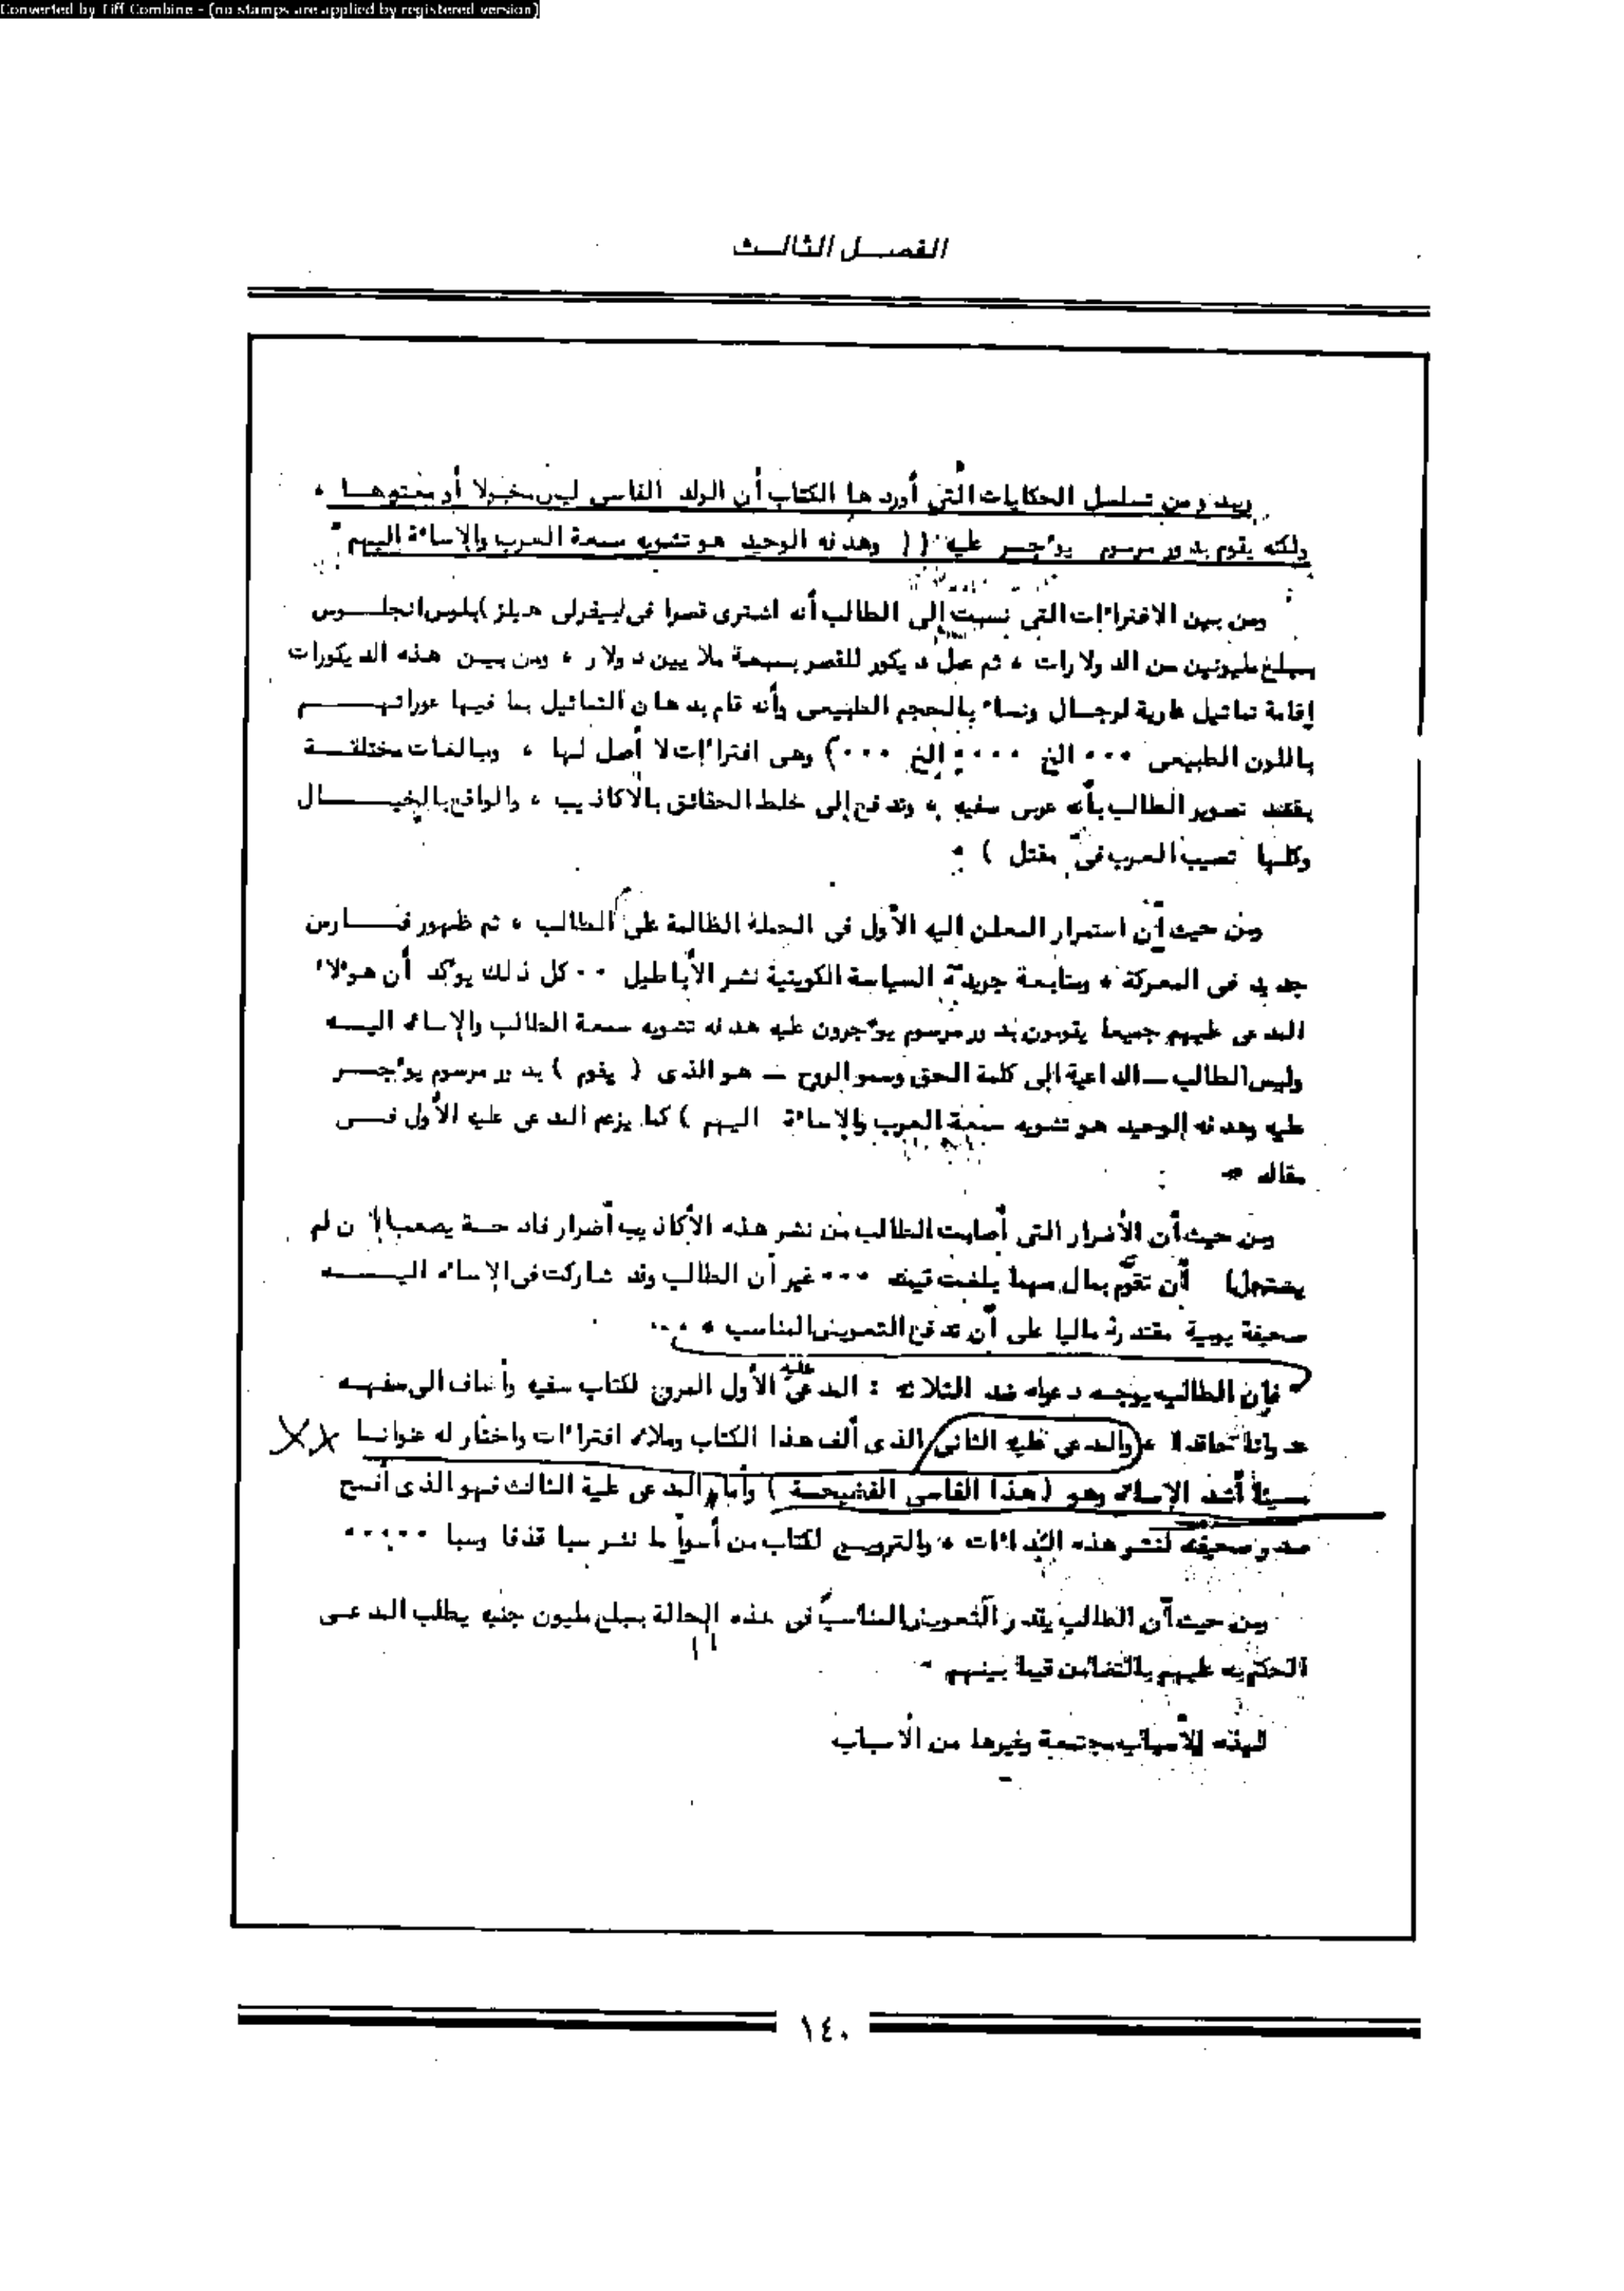 Converted by Tiff Combine - (no stamps are applied by registered version)
الفصل الثالث
ويبدو من تسلسل الحكايات التي أوردها الكتاب أن الولد الفاسى ليس مخبولا أو معتوها ،
ولكنه يقوم بدور مرسوم يؤجر عليه (( وهدفه الوحيد هو تشويه سمعة العرب والإساءة اليهم "
ومن بين الافتراءات التى نسبت إلى الطالب أنه اشترى قصرا فى (بيفرلى هيلز) بلوس انجلوس
بمبلغ مليونين من الدولارات ، ثم عمل ديكور للقصر بسبعة ملايين دولار ، ومن بين هذه الديكورات
إقامة تماثيل عارية لرجال ونساء بالحجم الطبيعى وأنه قام بدهان التماثيل بما فيها عوراتهم
باللون الطبيعى ... الخ .... إلخ ...) وهى افتراءات لا أصل لها ، ومبالغات مختلقة
يقصد تصوير الطالب بأنه عربى سفيه ، وتدفع إلى خلط الحقائق بالأكاذيب ، والواقع بالخيال
وكلها تصيب العرب فى مقتل ) .
ومن حيث أن استمرار المعلن اليه الأول فى الحملة الظالمة على الطالب ، ثم ظهور فارس
جديد فى المعركة ، ومتابعة جريدة السياسة الكويتية نشر الأباطيل .. كل ذلك يؤكد أن هؤلاء
المدعى عليهم جميعا يقومون بدور مرسوم يؤجرون عليه هدفه تشويه سمعة الطالب والإساءة اليه
وليس الطالب ــ الداعية إلى كلمة الحق وسمو الروح ــ هو الذى ( يقوم ) بدور مرسوم يؤجر
عليه وهدفه الوحيد هو تشويه سمعة العرب والإساءة اليهم ) كما يزعم المدعى عليه الأول فى
مقاله .
ومن حيث أن الأضرار التى أصابت الطالب من نشر هذه الأكاذيب أضرار فادحة يصعب إن لم
يستحل أن تقوّم بمال مهما بلغت قيمته ... غير أن الطالب وقد شاركت فى الإساءة اليه
صحيفة يومية مقتدرة ماليا على أن تدفع التعويض المناسب . ..
فإن الطالب يوجه دعواه ضد الثلاثة : المدعى عليه الأول المروج لكتاب سفيه وأضاف الى سفهه
عدوانا متحاملا ، والمدعى عليه الثانى الذى ألف هذا الكتاب وملأه افتراءات واختار له عنوانا XX
مسيئا أشد الإساءة وهو (هذا الفاسى الفضيحة ) وأما المدعى علية الثالث فهو الذى أفسح
صدر صحيفته لنشر هذه البذاءات ، والترويج لكتاب من أسوأ ما نشر سبا قذفا وسبا .....
ومن حيث أن الطالب يقدر التعويض المناسب فى هذه الحالة بمبلغ مليون جنيه يطلب المدعى
الحكم به عليهم بالتضامن فيما بينهم .
لهذه الأسباب مجتمعة وغيرها من الأسباب
١٤٠